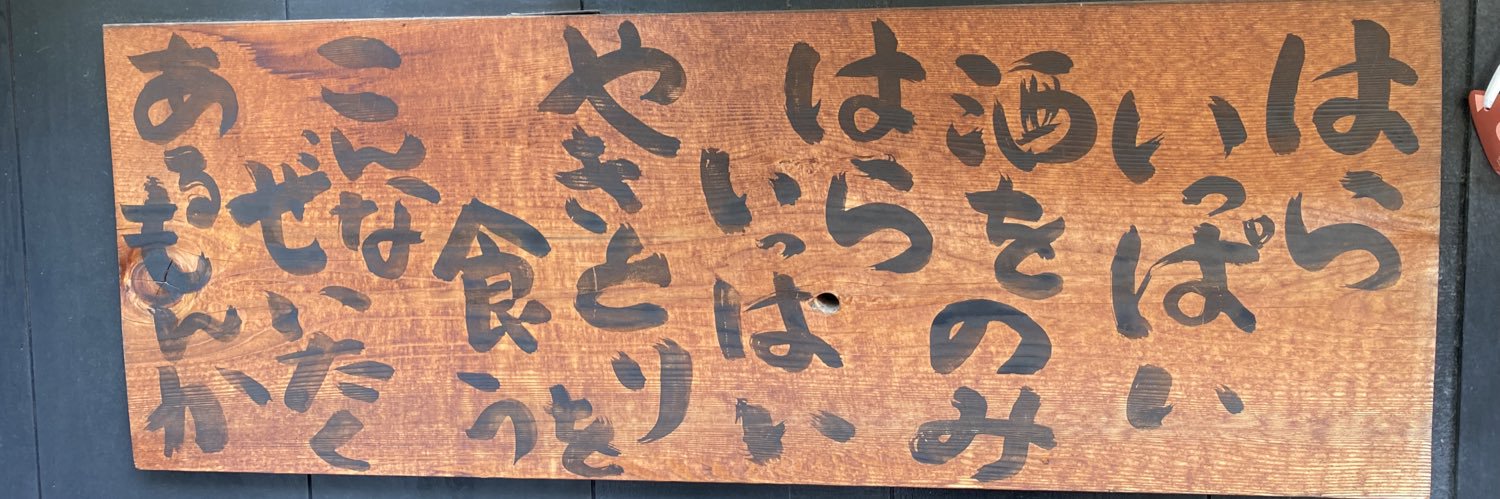 はら
いっぱい
酒をのみ
はら
いっぱい
やきとりを
食う
こんな
ぜいたく
あるもんか